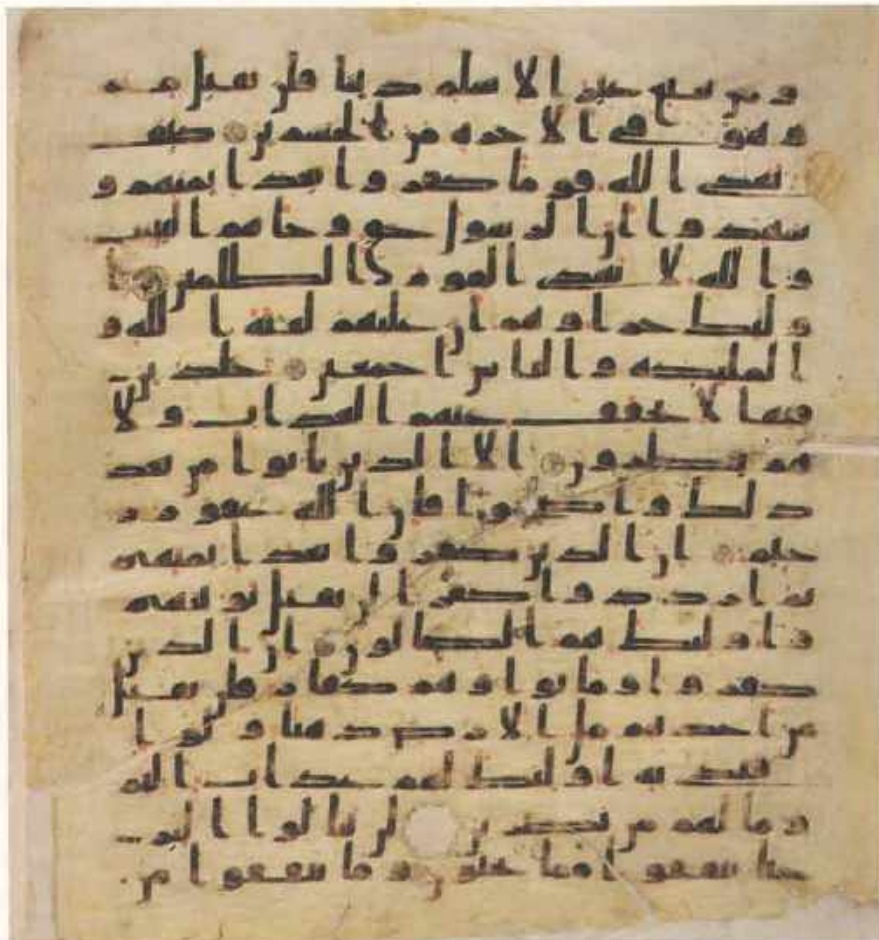 ومن يبتغ غير الاسلم دينا فلن يقبل منه
وهو في الاخره من الخسرين كيف
يهدي الله قوما كفروا بعد ايمنهم و
شهدوا ان الرسول حق وجاهم البينت
والله لا يهدي القوم الظلمين ا
ولئك جزاوهم ان عليهم لعنه الله و
الملئكه والناس اجمعين خلدين
فيها لا يخفف عنهم العذاب ولا
هم ينظرون الا الذين تابوا من بعد
ذلك واصلحوا فان الله غفور ر
حيم ان الذين كفروا بعد ايمنهم
ثم ازدادوا كفرا لن تقبل توبتهم
واولئك هم الضالون ان الذين
كفروا وماتوا وهم كفار فلن يقبل
من احدهم مل الارض ذهبا ولو ا
فتدى به اولئك لهم عذاب اليم
وما لهم من نصرين لن تنالوا البر
حتى تنفقوا مما تحبون وما تنفقوا من